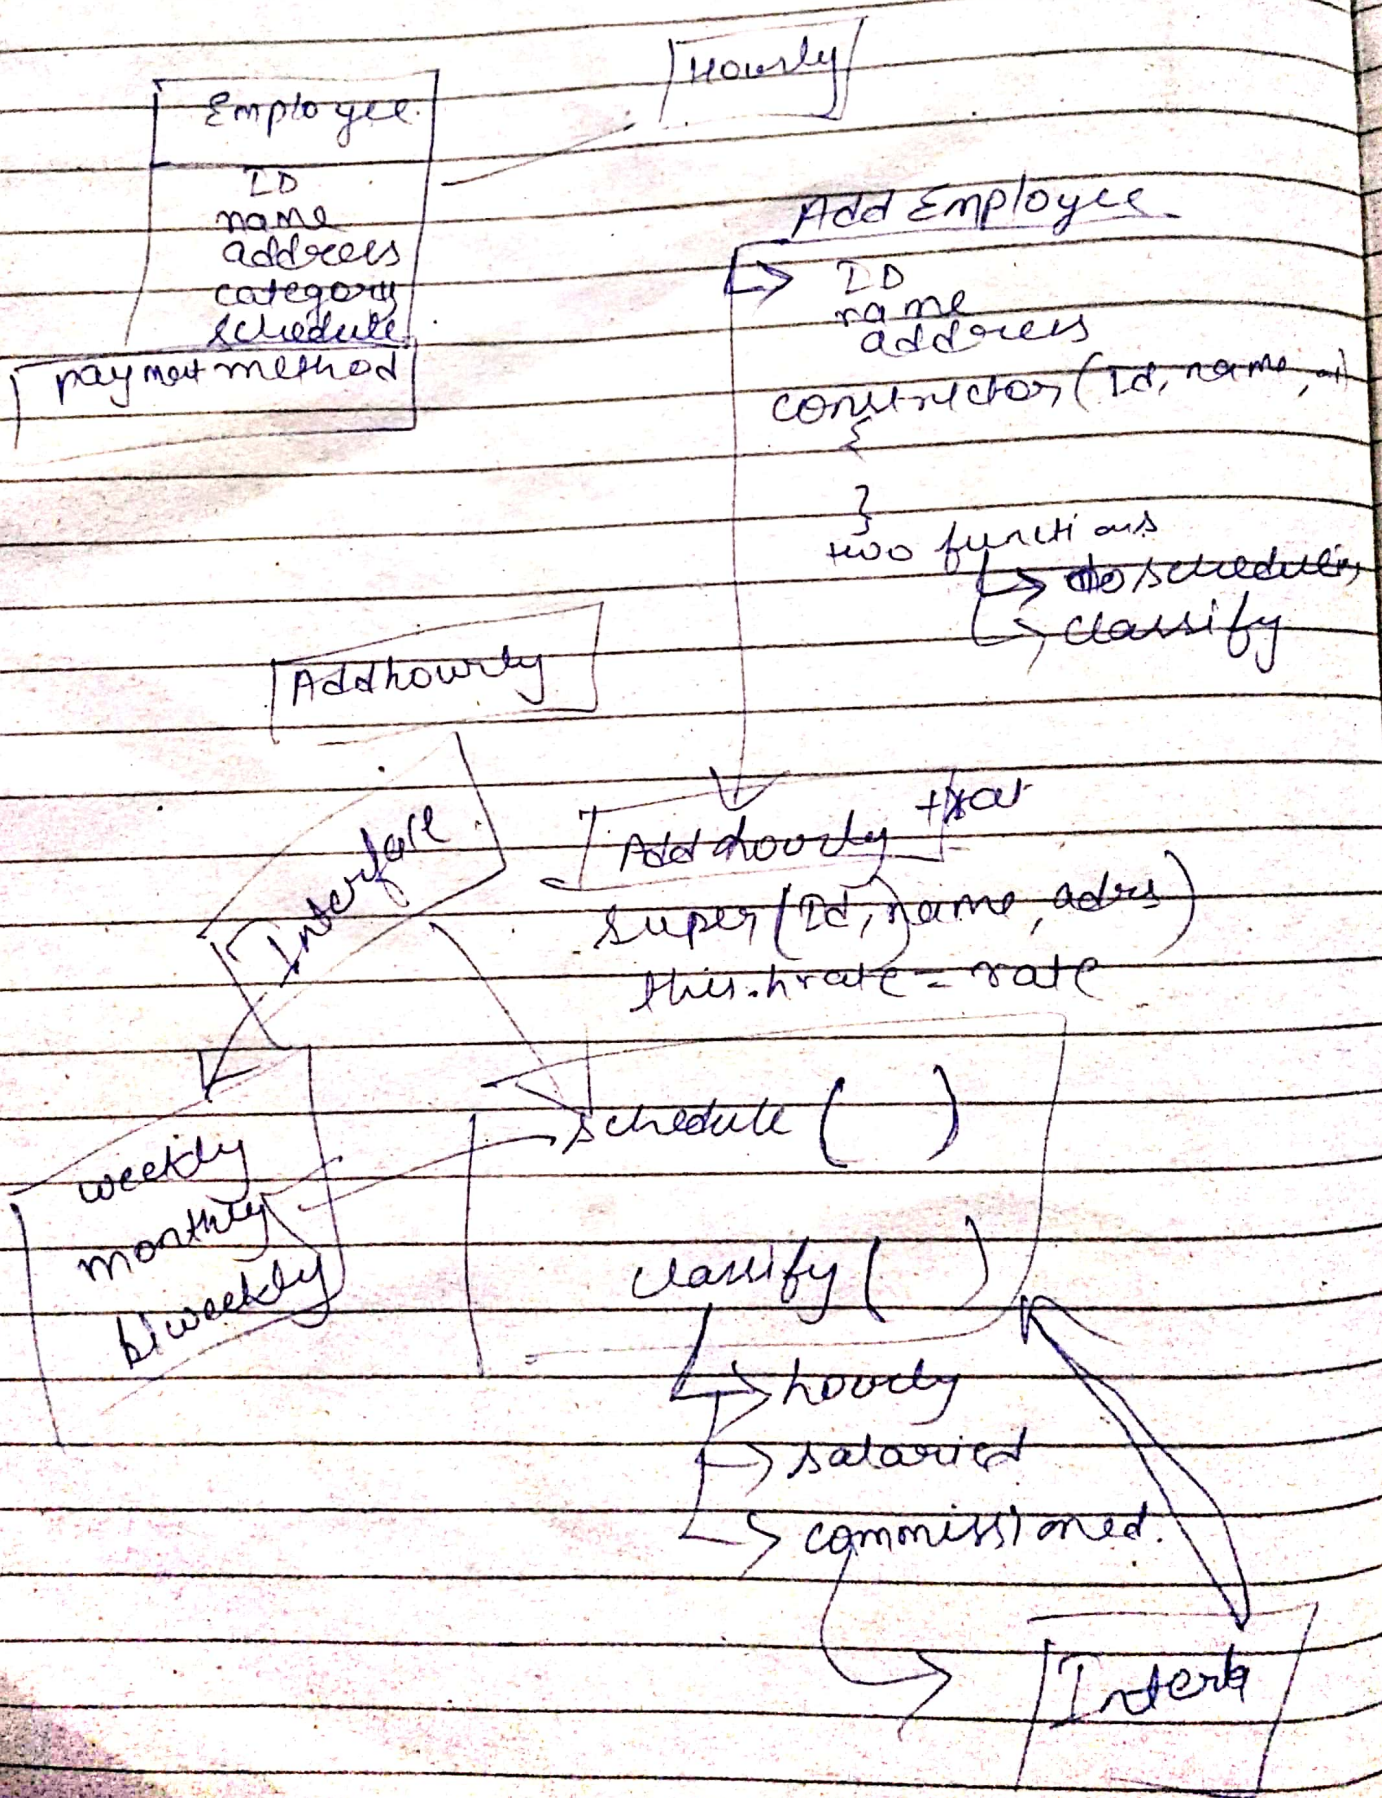 Hourly
Employee
ID
name
address
category
schedule
payment method
Add Employee
ID
name
address
constructor (Id, name,
{
}
two functions
schedulin
classify
Addhourly
Interface
Add hourly
super (Id, name, adrs)
this.hrate = rate
schedule ( )
weekly
monthly
biweekly
classify ( )
hourly
salaried
commissioned.